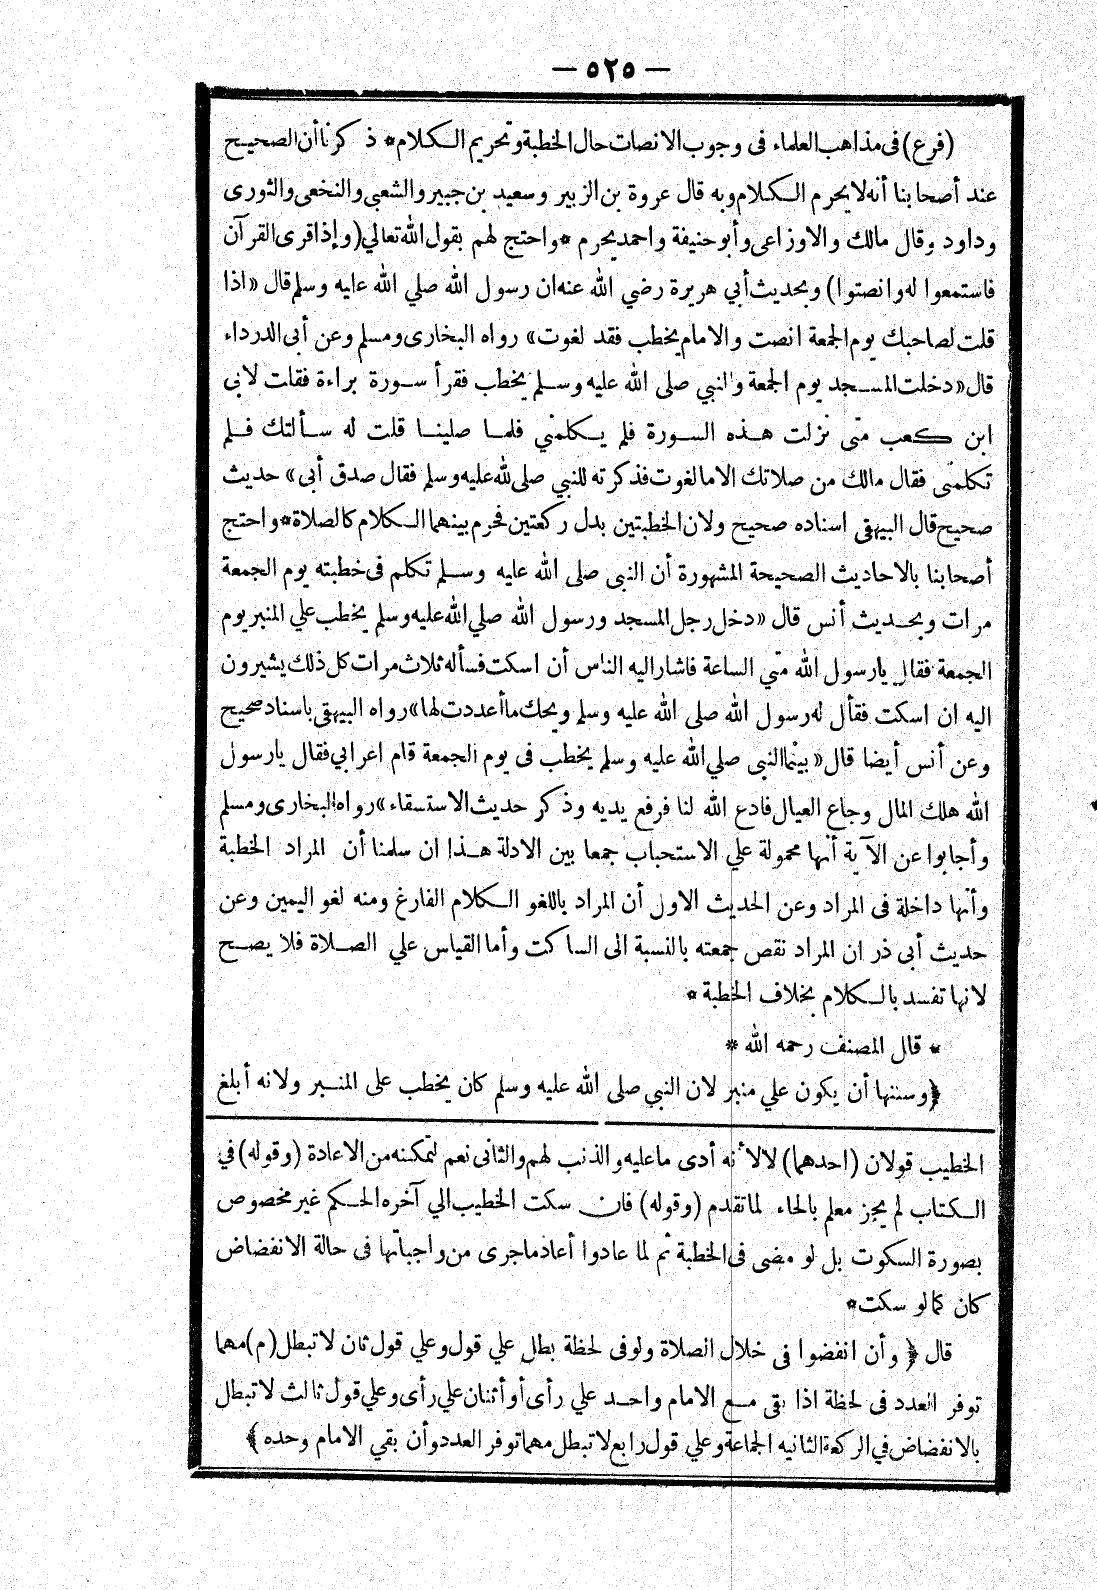 — ٥٢٥ —
(فرع) فى مذاهب العلماء فى وجوب الانصات حال الخطبة وتحريم الكلام * ذكرنا أن الصحيح
عند أصحابنا أنه لا يحرم الكلام وبه قال عروة بن الزبير وسعيد بن جبير والشعبي والنخعى والثورى
وداود وقال مالك والاوزاعى وأبو حنيفة واحمد يحرم * واحتج لهم بقول الله تعالي (وإذا قرى القرآن
فاستمعوا له وانصتوا) وبحديث أبي هريرة رضي الله عنه ان رسول الله صلي الله عليه وسلم قال «اذا
قلت لصاحبك يوم الجمعة انصت والامام يخطب فقد لغوت» رواه البخارى ومسلم وعن أبى الدرداء
قال «دخلت المسجد يوم الجمعة والنبي صلى الله عليه وسلم يخطب فقرأ سورة براءة فقلت لابى
ابن كعب متى نزلت هذه السورة فلم يكلمني فلما صلينا قلت له سألتك فلم
تكلمنى فقال مالك من صلاتك الا ما لغوت فذكرته للنبي صلى لله عليه وسلم فقال صدق أبى» حديث
صحيح قال البيهقى اسناده صحيح ولان الخطبتين بدل ركعتين فحرم بينهما الكلام كالصلاة * واحتج
أصحابنا بالاحاديث الصحيحة المشهورة أن النبى صلى الله عليه وسلم تكلم فى خطبته يوم الجمعة
مرات وبحديث أنس قال «دخل رجل المسجد ورسول الله صلي الله عليه وسلم يخطب علي المنبر يوم
الجمعة فقال يا رسول الله متي الساعة فاشار اليه الناس أن اسكت فسأله ثلاث مرات كل ذلك يشيرون
اليه ان اسكت فقال له رسول الله صلى الله عليه وسلم ويحك ما أعددت لها» رواه البيهقى باسناد صحيح
وعن أنس أيضا قال «بينما النبى صلي الله عليه وسلم يخطب فى يوم الجمعة قام اعرابي فقال يا رسول
الله هلك المال وجاع العيال فادع الله لنا فرفع يديه وذكر حديث الاستسقاء» رواه البخارى ومسلم
وأجابوا عن الآية أنها محمولة علي الاستحباب جمعا بين الادلة هذا ان سلمنا أن المراد الخطبة
وأنها داخلة فى المراد وعن الحديث الاول أن المراد باللغو الكلام الفارغ ومنه لغو اليمين وعن
حديث أبى ذر ان المراد نقص جمعته بالنسبة الى الساكت وأما القياس علي الصلاة فلا يصح
لانها تفسد بالكلام بخلاف الخطبة *
* قال المصنف رحمه الله *
﴿وسننها أن يكون علي منبر لان النبي صلى الله عليه وسلم كان يخطب على المنبر ولانه أبلغ
الخطيب قولان (احدهما) لا لانه أدى ما عليه والذنب لهم والثانى نعم لتمكنه من الاعادة (وقوله) في
الكتاب لم يجز معلم بالحاء لما تقدم (وقوله) فان سكت الخطيب الي آخره الحكم غير مخصوص
بصورة السكوت بل لو مضى فى الخطبة ثم لما عادوا أعاد ما جرى من واجباتها فى حالة الانفضاض
كان كما لو سكت *
قال ﴿وأن انفضوا فى خلال الصلاة ولو فى لحظة بطل علي قول وعلي قول ثان لا تبطل (م) مهما
توفر العدد فى لحظة اذا بقى مع الامام واحد علي رأى أو أثنان علي رأى وعلي قول ثالث لا تبطل
بالانفضاض في الركعة الثانيه الجماعة وعلي قول رابع لا تبطل مهما توفر العدد وأن بقي الامام وحده﴾